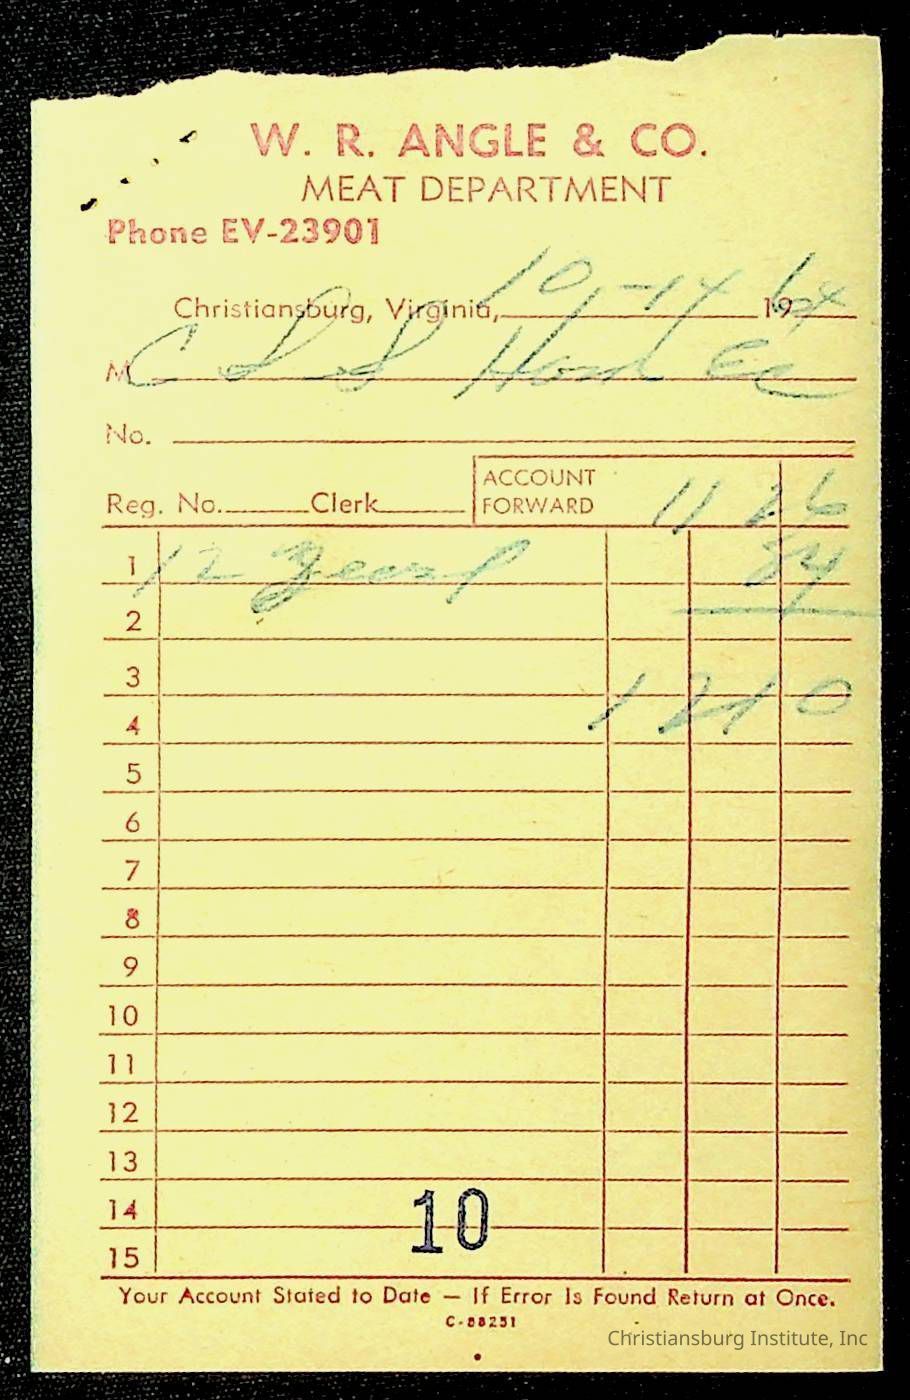 W. R. ANGLE & CO.
MEAT DEPARTMENT
Phone EV-23901
Christiansburg, Virginia, 10-14 1964
M C
No.
Reg. No. Clerk
ACCOUNT FORWARD 11 26
1 12 84
2
3
4 12 10
5
6
7
8
9
10
11
12
13
14
15
10
Your Account Stated to Date — If Error Is Found Return at Once.
C-88251
Christiansburg Institute, Inc